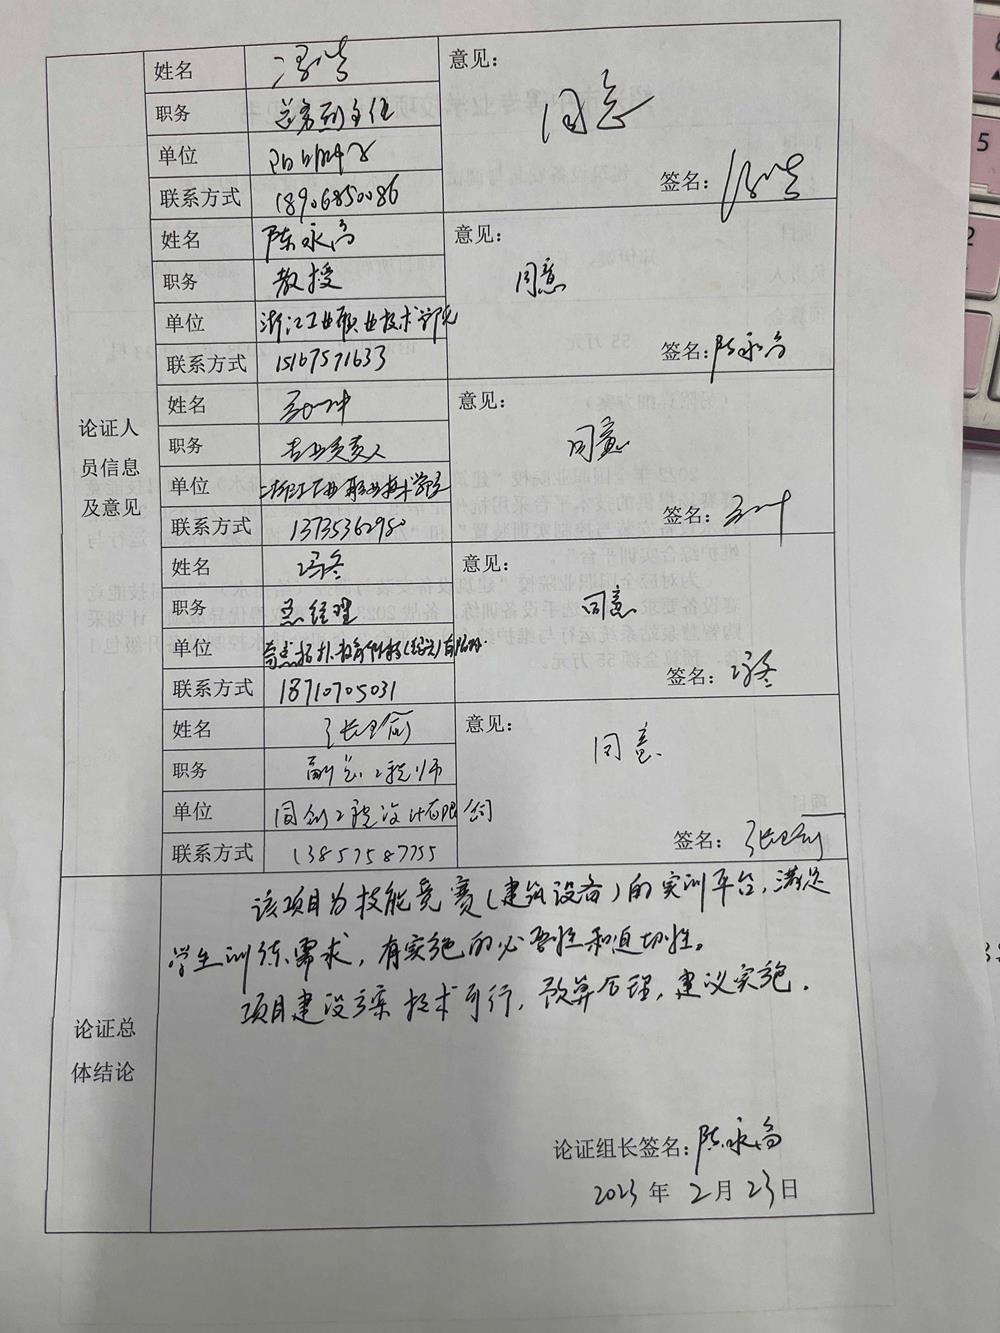 姓名
意见：
同意
职务
单位
签名：
联系方式 18906850086
姓名 陈永高
意见：
职务 教授
同意
单位 浙江工业职业技术学院
签名：陈永高
联系方式 15167571633
论证人
员信息
及意见
姓名
意见：
职务 专业负责人
同意
单位 浙江工业职业技术学院
签名：
联系方式 13735362980
姓名 冯冬
意见：
职务 总经理
同意
单位
签名：冯冬
联系方式 18710705031
姓名
意见：
同意
职务 副总工程师
单位 同创工程设计有限公司
签名：
联系方式 13857587755
论证总
体结论
该项目为技能竞赛（建筑设备）的实训平台，满足
学生训练需求，有实施的必要性和迫切性。
项目建设方案技术可行，预算合理，建议实施.
论证组长签名：陈永高
2023 年 2 月 23 日